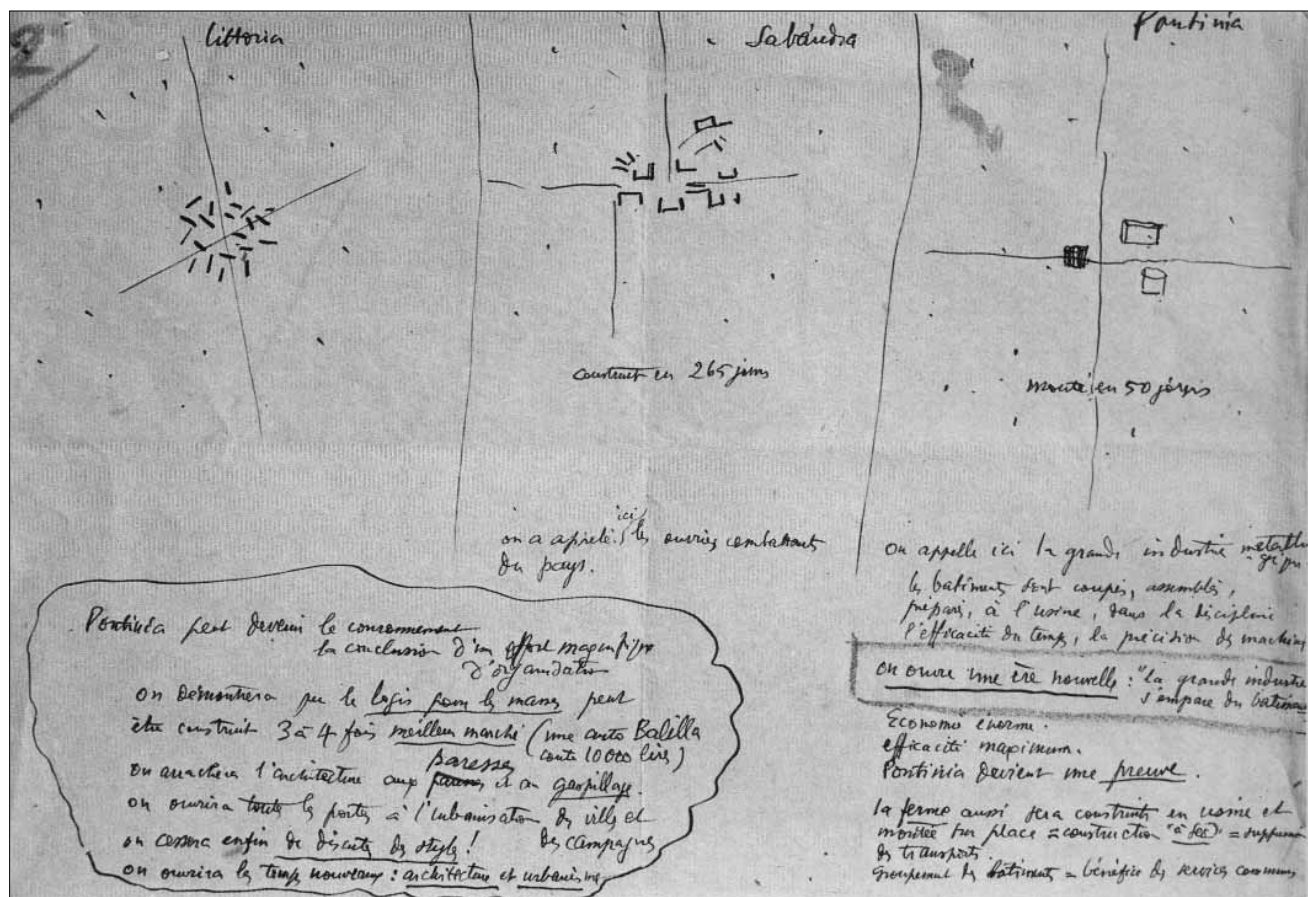 Littoria
Sabaudia
Pontinia
construit en 265 jours
monté en 50 jours
ici
on a appelé les ouvriers combattants
du pays.
on appelle ici la grande industrie métallurgique
les bâtiments sont coupés, assemblés,
préparés, à l'usine, dans la discipline
l'efficacité du temps, la précision des machines
on ouvre une ère nouvelle : "la grande industrie
s'empare du bâtiment
Économie énorme.
efficacité maximum.
Pontinia devient une preuve.
la ferme aussi sera construite en usine et
montée sur place = construction "à sec" =
des transports.
groupement des bâtiments = bénéfice des services communs
Pontinia peut devenir le couronnement
la conclusion d'un effort magnifique
d'organisation
on démontrera que le logis pour les masses peut
être construit 3 à 4 fois meilleur marché (une auto Balilla
coûte 10000 lires)
paresses
on arrachera l'architecture aux et au gaspillage.
on ouvrira toutes les portes à l'urbanisation des villes et
des campagnes
on cessera enfin de discuter des styles !
on ouvrira les temps nouveaux : architecture et urbanisme